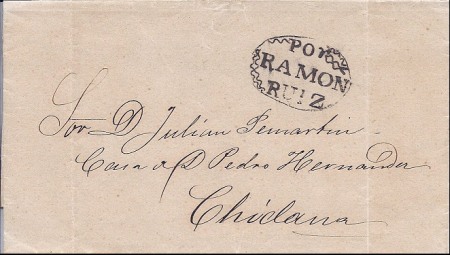 POR
RAMON
RUIZ
Sor D Julian Pemartin
Casa d D Pedro Hernander
Chiclana